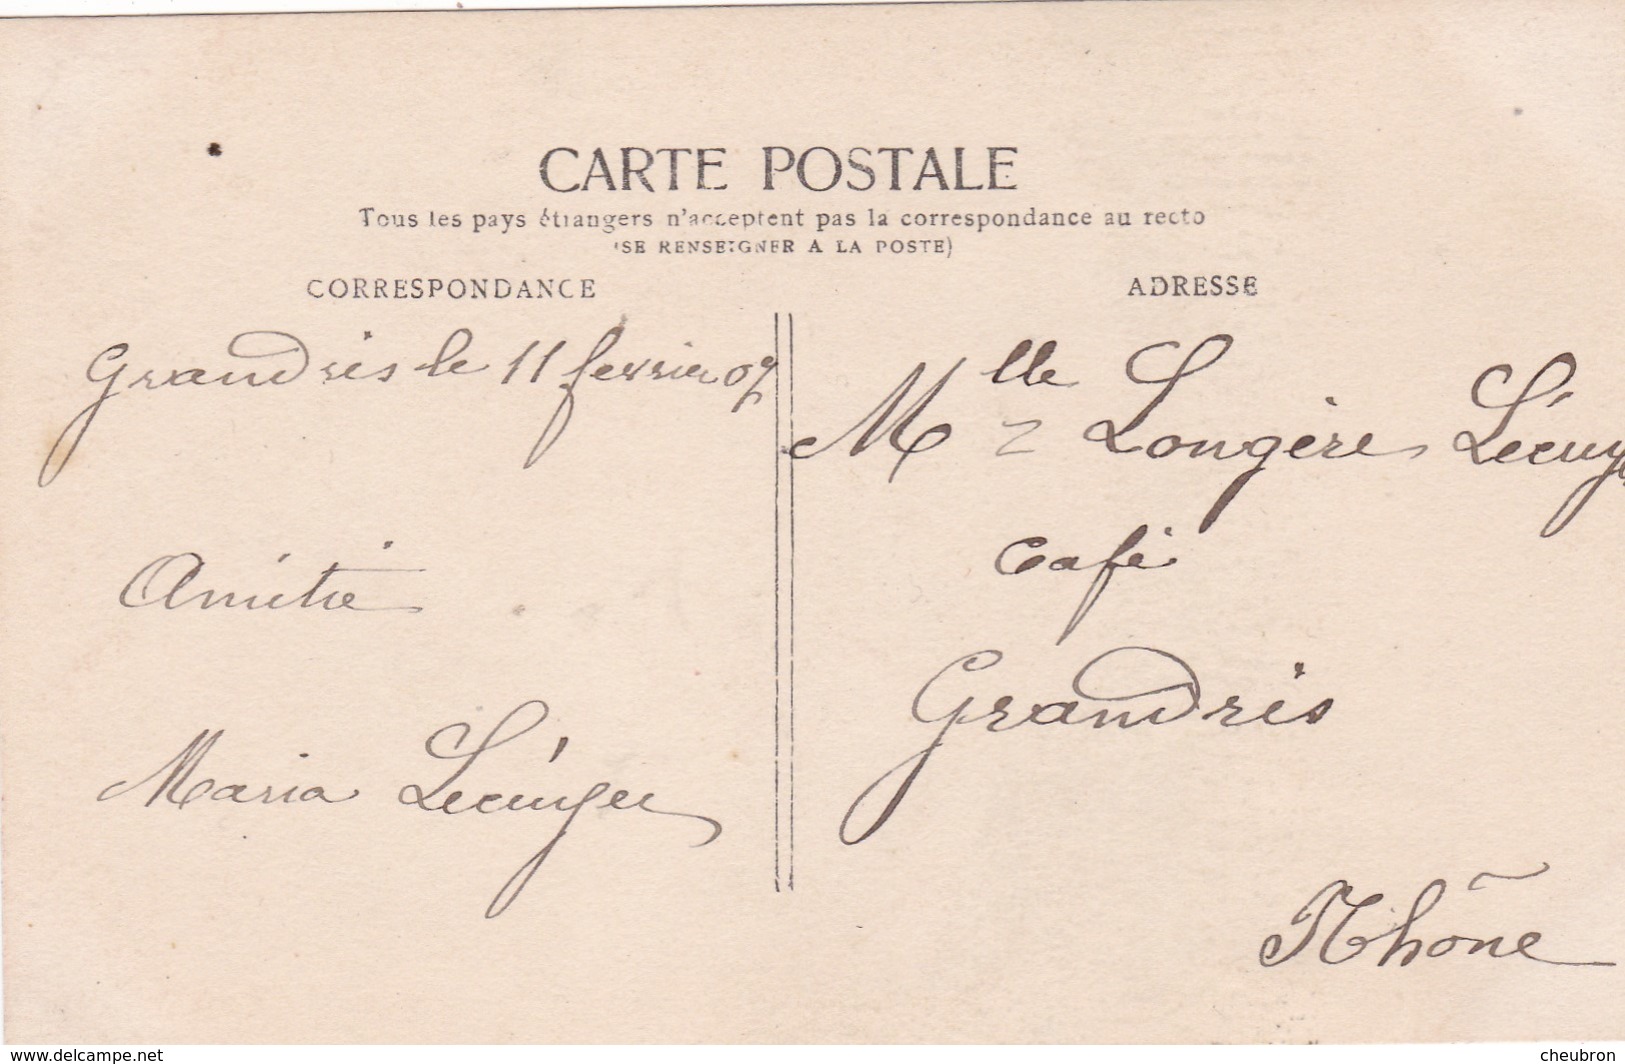 CARTE POSTALE
Tous les pays étrangers n'acceptent pas la correspondance au recto
(SE RENSEIGNER A LA POSTE)
CORRESPONDANCE
Grandris le 11 fevrier 07
Amitié
Maria Lécuyer
ADRESSE
Mlle Longère Lécuy
Café
Grandris
Rhône
www.delcampe.net
cheubron